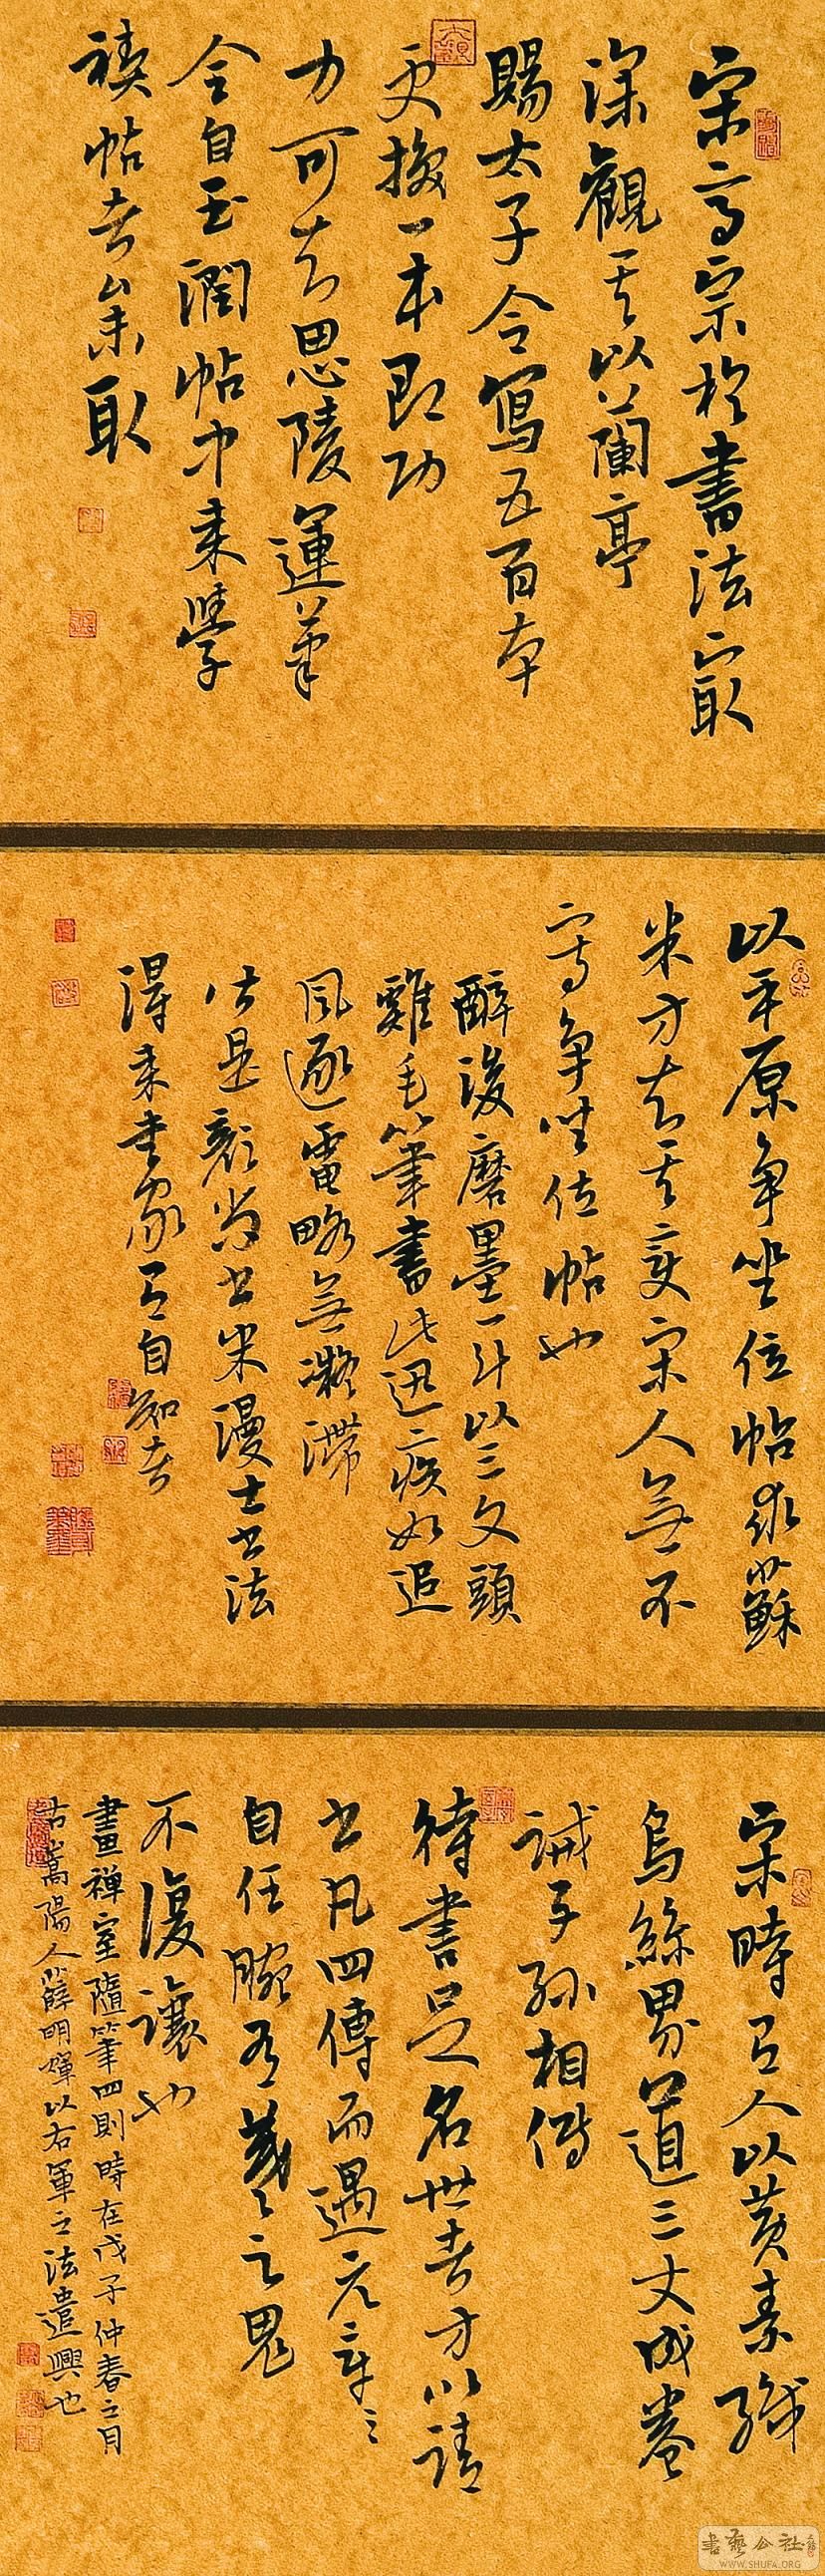 宋高宗於書法最
深觀其以蘭亭
賜太子令寫五百本
更換一本即功
力可知思陵運筆
全自玉潤帖中來學
禊帖者參取
以平原爭坐位帖求蘇
米方知其變宋人無不
寫爭坐位帖也
醉後磨墨一斗以三文頭
雞毛筆書此迅疾如追
風逐電略無凝滯
皆是顏尚書米漫士書法
得來書家有自知者
宋時有人以黃素織
烏絲界道三丈成卷
誡子孫相傳
待書足名世者方以請
書凡四傳而遇元章元章
自任腕有羲之鬼
不復讓也
畫禪室隨筆四則時在戊子仲春之月
古嵩陽人薛明輝以右軍之法遣興也
書藝公社
WWW.SHUFA.ORG